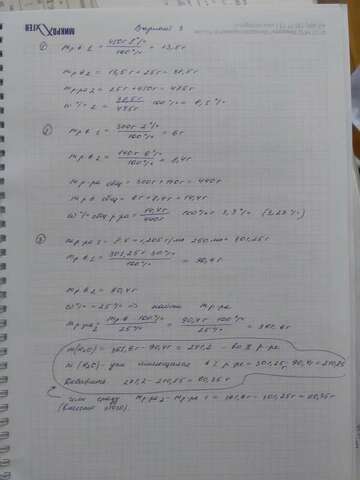 МИКРОТЕН
Вариант 3
m р.в 1 = 450г·3% / 100% = 13,5г
m р.в 2 = 13,5г + 25г = 38,5г
m р-ра 2 = 25г + 450г = 475г
w% 2 = 38,5г / 475г · 100% = 8,1%
m р.в 1 = 300г·2% / 100% = 6г
m р.в 2 = 140г·6% / 100% = 8,4г
m р-ра общ = 300г + 140г = 440г
m р.в общ = 6г + 8,4г = 14,4г
w% общ р-ра = 14,4г / 440г · 100% = 3,3% (3,28%)
m р-ра 1 = = 1,205г/мл · 250мл = 301,25г
m р.в 1 = 301,25г·30% / 100% = 90,4г
m р.в 2 = 90,4г
w% = 25% => найти m р-ра
m р-ра 2 = m р.в · 100% / 25% = 90,4г · 100% / 25% = 361,6г
m(H2O) = 361,6г - 90,4г = 271,2 - во II р-ре
m(H2O) - уже имеющаяся в I р-ре = 301,25г - 90,4г = 210,85
Добавить 271,2 - 210,85 = 60,35г
или сразу m р-ра 2 - m р-ра 1 = 361,6г - 301,25г = 60,35г